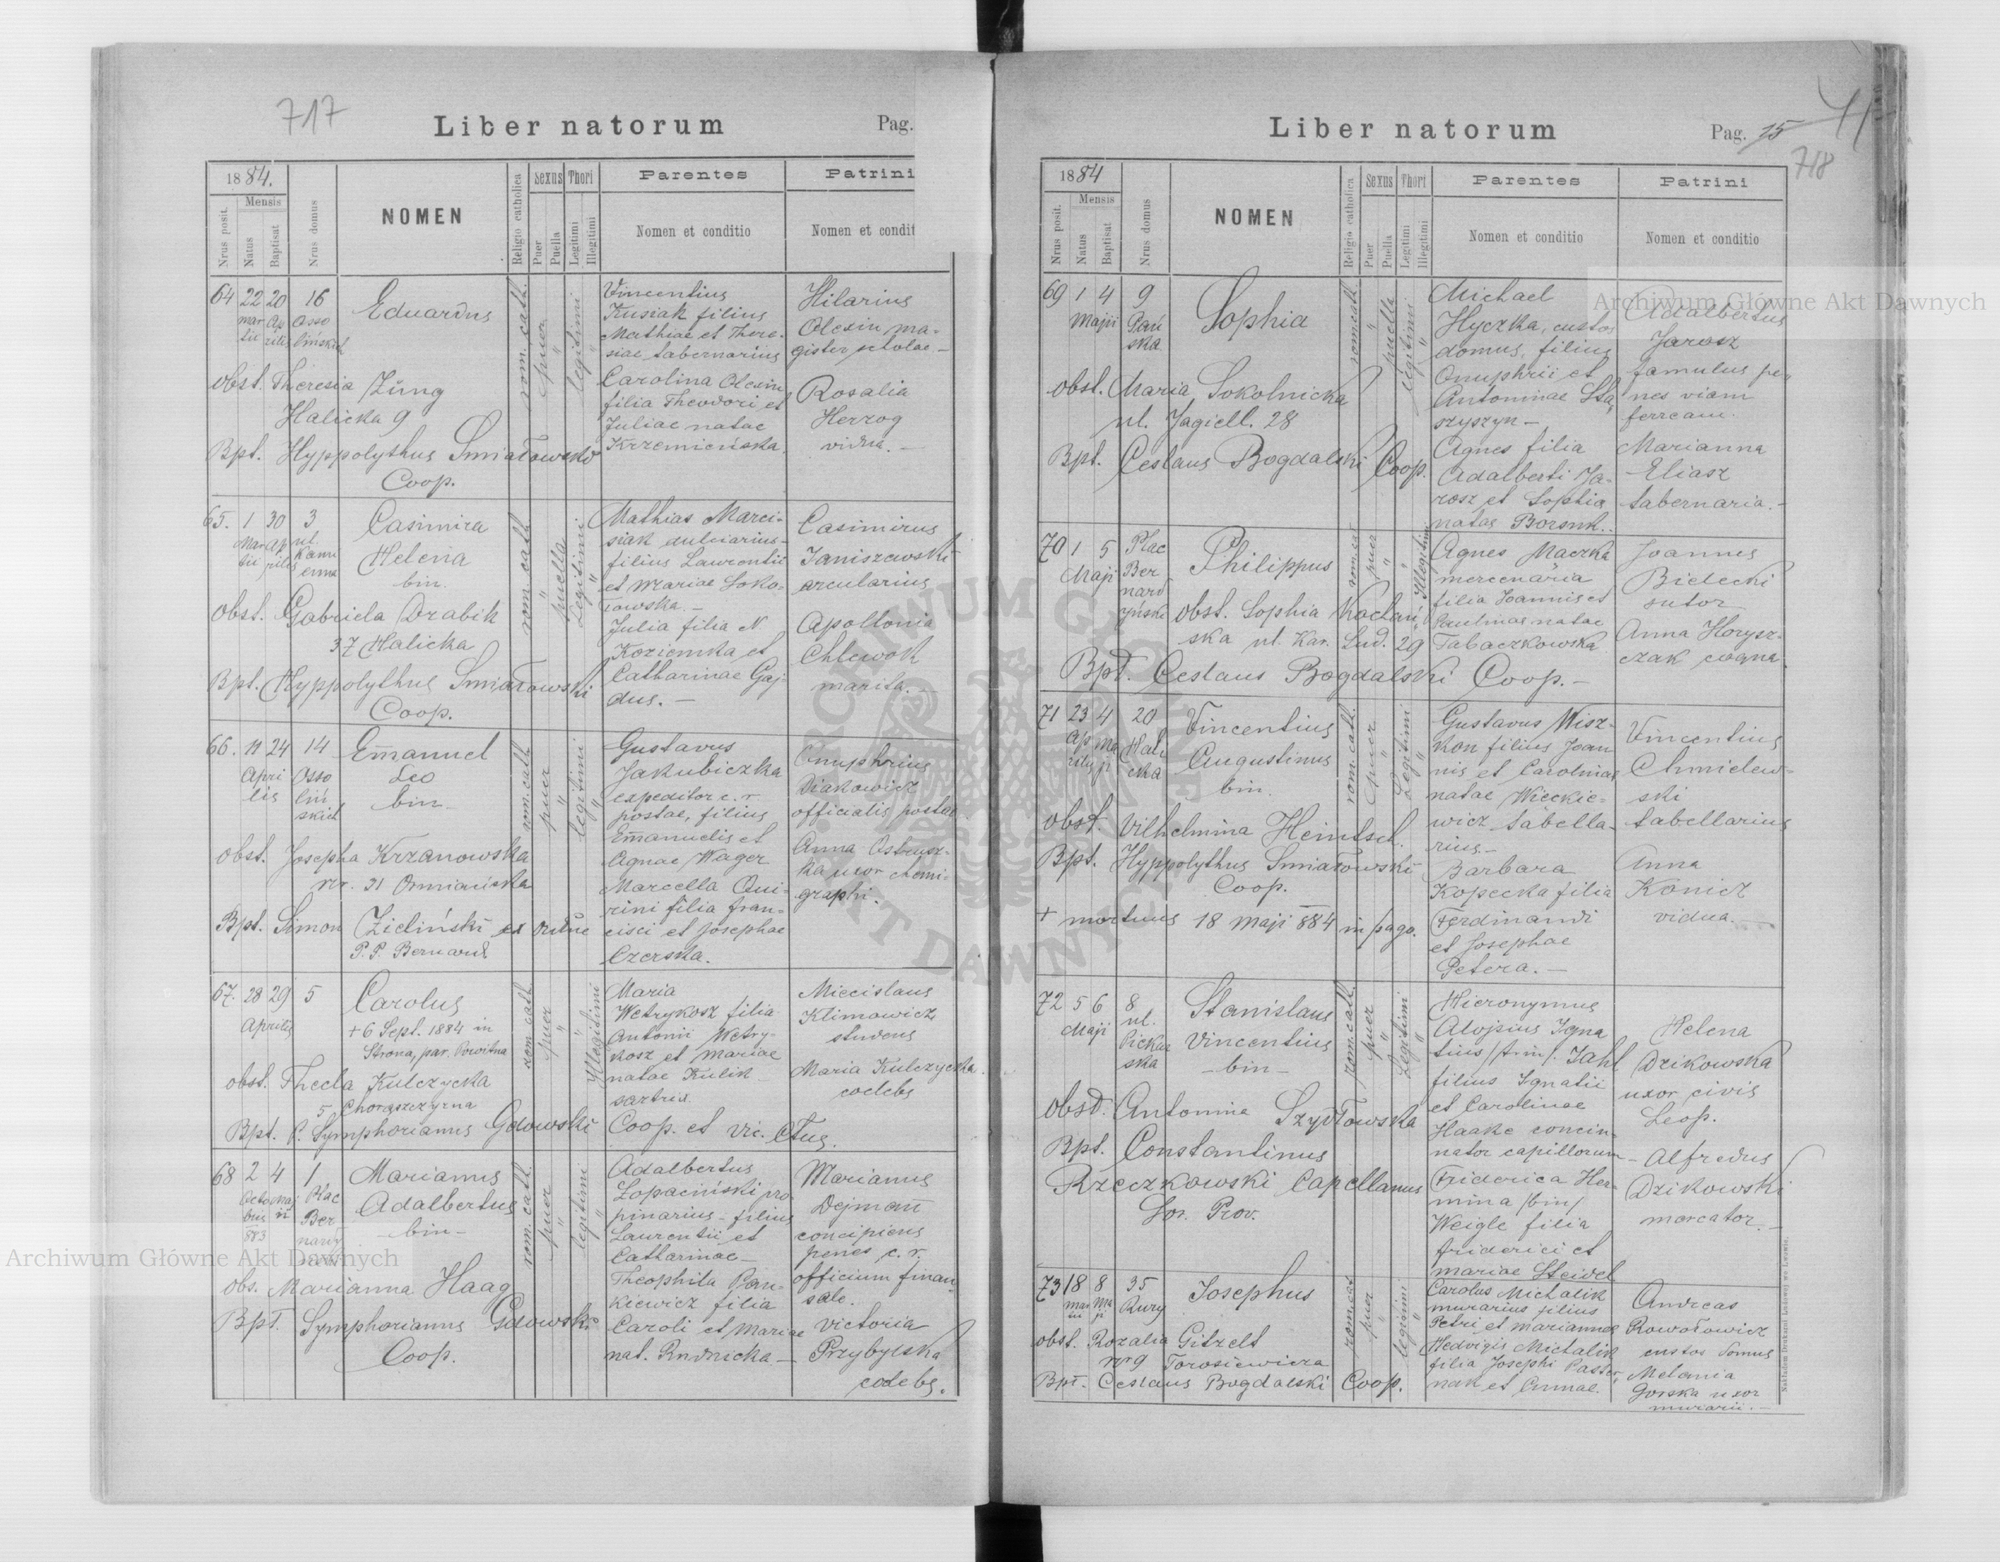 717
Liber natorum
Pag.
1884.
Mensis
Nrus posit.
Natus
Baptisat
Nrus domus
NOMEN
Religio catholica
Sexus
Puer
Puella
Thori
Legitimi
Illegitimi
Parentes
Nomen et conditio
Patrini
Nomen et condit
64 22 20 16 Eduardus
martii Aprilis Ossolińskich
rom. cath. puer legitimi
obst. Theresia Züng
Halicka 9
Bpt. Hyppolythus Śmiałowski
Coop.
Vincentius
Kusiak filius
Mathiae et There-
siae tabernarius
Carolina Olexin
filia Theodori et
Juliae natae
Krzemieńska.
Hilarius
Olexin ma-
gister scholae.-
Rosalia
Herzog
vidua. -
65. 1 30 3 Casimira
Martii Aprilis ul. Helena
bin.
rom. cath. puella Legitimi
obst. Gabriela Drabik
37 Halicka
Bpt. Hyppolythus Śmiałowski
Coop.
Mathias Marci-
siak dulciarius-
filius Laurentii
et Mariae Soko-
łowska. -
Julia filia N
Koziemka et
Catharinae Gaj
dus. -
Casimirus
Janiszewski
arcularius
Apollonia
Chlewok
marita. -
66. 11 24 14 Emanuel
Aprilis Ossolińskich Leo
bin-
rom. cath. puer legitimi
obst. Josepha Krzanowska
nr. 31 Ormiańska
Bpt. Simon Zieliński ex ordine
P. P. Bernard.
Gustavus
Jakubiczka
expeditor c. r.
postae, filius
Emanuelis et
Agnae Wager
Marcella Qui-
rini filia Fran-
cisci et Josephae
Czerska.
Onuphrius
Diakowicz
officialis postae.
Anna Ostrusz-
ka uxor chemi-
graphi.
67. 28 29 5 Carolus
Aprilis
+ 6 Sept. 1884 in
Strona, par. Powitna
rom. cath. puer Illegitimi
obst. Thecla Kulczycka
5 Chorążczyzna
Bpt. P. Symphorianus Gdowski Coop. et Vic. Ctus.
Maria
Wetrykosz filia
Antonii Wetry-
kosz et Mariae
natae Kulik
sartrix.
Miecislaus
Klimowicz
studens
Maria Kulczycka.
coelebs
68 2 4 1 Marianus
Octobris 883 Maji Plac Bernardyński Adalbertus
bin-
rom. cath. puer legitimi
obs. Marianna Haag
Bpt. Symphorianus Gdowski
Coop.
Adalbertus
Łopaciński pro
pinarius - filius
Laurentii et
Catharinae-
Theophila Pan-
kiewicz filia
Caroli et Mariae
nat. Rudnicka -
Marianus
Dejmam
concipiens
penes c. r.
officium finan-
sale.
Victoria
Przybylska
coelebs.
Liber natorum
Pag. 75
718
1884
Mensis
Nrus posit.
Natus
Baptisat
Nrus domus
NOMEN
Religio catholica
Sexus
Puer
Puella
Thori
Legitimi
Illegitimi
Parentes
Nomen et conditio
Patrini
Nomen et conditio
69 1 4 9 Sophia
Maji Pańska
rom. cath. puella legitimi
obst. Maria Sokolnicka
ul. Jagiell. 28
Bpt. Ceslaus Bogdalski Coop.
Michael
Hyczka, custos
domus, filius
Onuphrii et
Antoninae Sta
szyszyn -
Agnes filia
Adalberti Ja-
rosz et Sophia
natae Borsuk.
Adalbertus
Jarosz
famulus pe-
nes viam
ferream.
Marianna
Eliasz
tabernaria. -
70 1 5 Plac Philippus
Maji Bernardyński
rom. cat. puer Illegitimi
obst. Sophia Koctań-
ska ul. Kar. Lud. 29
Bpt. Ceslaus Bogdalski Coop. -
Agnes Maczka
mercenaria
filia Joannis et
Paulinae natae
Tabaczkowska
Joannes
Bielecki
sutor
Anna Horysz-
czak cogna.
71 23 4 20 Vincentius
Aprilis Maji Halicka Augustinus
bin.
rom. cath. puer Legitimi
obst. Vilhelmina Heintsch.
Bpt. Hyppolythus Śmiałowski
Coop.
+ mortuus 18 Maji 884 in pago.
Gustavus Wisz-
kon filius Joan
nis et Carolinae
natae Wieckie-
wicz tabella-
rius-
Barbara
Kopecka filia
Ferdinandi
et Josephae
Petera. -
Vincentius
Chmielew-
ski
tabellarius
Anna
Konicz
vidua. -
72 5 6 8 Stanislaus
Maji ul. Piekarska Vincentius
- bin -
rom. cath. puer Legitimi
obst. Antonina Szydłowska
Bpt. Constantinus
Rzeczkowski Capellanus
Sor. Prov.
Hieronymus
Alojsius Igna
tius /trin/. Jahl
filius Ignatii
et Carolinae
Haake concin-
nator capillorum-
Friderica Her-
mina /bin/
Weigle filia
Friderici et
Mariae Steidel
Helena
Dzikowska
uxor civis
Leop.
Alfredus
Dzikowski
mercator. -
73 18 8 35 Josephus
Martii Maji Rury
rom. cat. puer legitimi
obst. Rozalia Gitzelt
nr 9 Torosiewicza
Bpt. Ceslaus Bogdalski Coop.
Carolus Michalik
murarius filius
Petri et Mariannae
Hedvigis Michalik
filia Josephi Paster-
nak et Annae.
Andreas
Rowołowicz
custos domus
Melania
Gorska uxor
murarii. -
Archiwum Główne Akt Dawnych
Archiwum Główne Akt Dawnych
ARCHIWUM GŁÓWNE AKT DAWNYCH